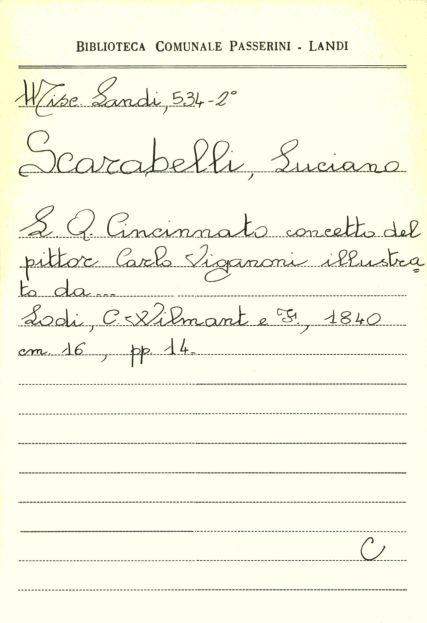 BIBLIOTECA COMUNALE PASSERINI - LANDI
Misc. Landi, 534-2°
Scarabelli, Luciano
L. Q. Cincinnato concetto del
pittor Carlo Viganoni illustra=
to da...
Lodi, C. Wilmant e F., 1840
cm. 16, pp. 14.
C